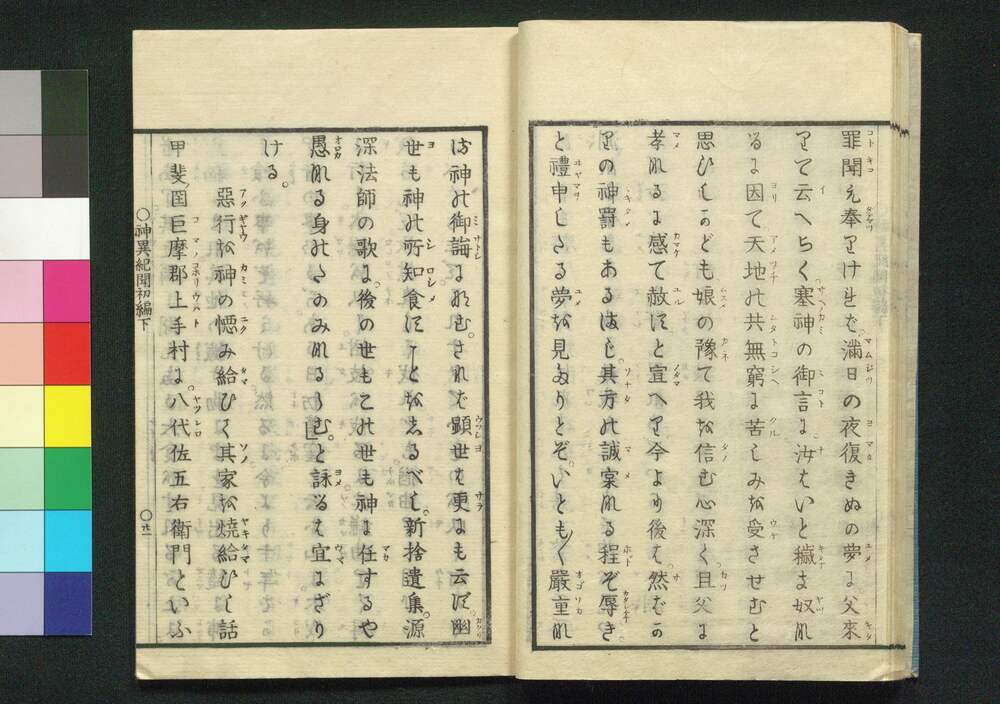 罪聞え奉りけれバ滿日の夜復きぬの夢に父來
りて云へらく塞神の御言に汝はいと穢き奴な
るに因て天地の共無窮に苦しみを受させむと
思ひしかども娘の豫て我を信む心深く且父に
孝なるに感て赦すと宣へり今より後は然ばか
りの神罸もあるまじ其方の誠實なる程ぞ辱き
と禮申しゝる夢を見ゐりとぞいとも〱嚴重な
は神の御誨になむ。されバ顯世は更にも云ず。幽
世も神の所知食すことをしるべし。新捨遺集。源
深法師の歌に。後の世もこの世も神に任するや
愚なる身のたのみなるらむ。と詠るは宜にざり
ける。
惡行を神の慝み給ひて其家を燒給ひし話
甲斐国巨摩郡上手村に。八代佐五右衛門といふ
〇神異紀聞初編下